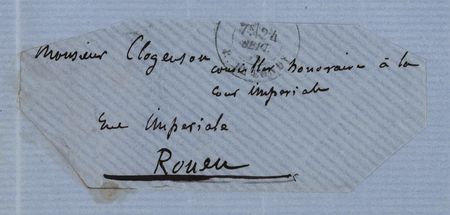 7E 24
SEPT.
Monsieur Clogenson
conseiller honoraire à la
cour impériale
rue impériale
Rouen